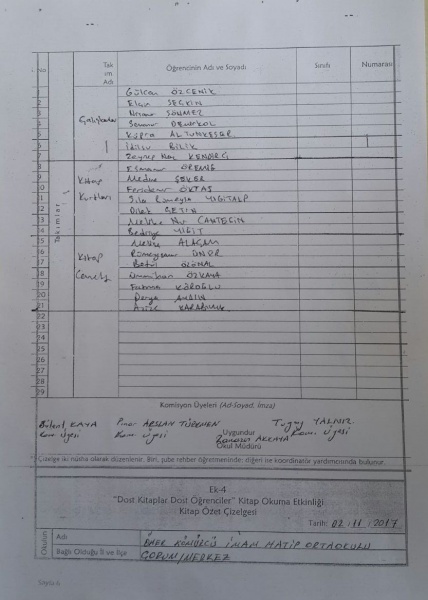 No Takım Adı Öğrencinin Adı ve Soyadı Sınıfı Numarası
Takımlar
Gülcan ÖZCENİK
2 Elçin SEÇKİN
3 SÖNMEZ
4 Çalışkanlar
5 Kübra ALTUNKESER
6 BİLİK
7 Zeynep Naz
8 Esmanur
9 Kitap ŞEKER
10 Kurtları Feridenur ÖKTAŞ
11 Sıla Rümeysa YİĞİTALP
12 Dilek ÇETİN
13 Melike Nur CANTEGİN
14 Bedriye YİĞİT
15 Melike ALAÇAM
16 Kitap Rümeysanur ÖNDR
17 Betül ÖZÜNAL
18 Cenneti ÖZKAYA
19 Fatma KÖROĞLU
20 Derya AYDIN
21
22
23
24
25
26
27
28
29
Komisyon Üyeleri (Ad-Soyad, imza)
Bülent KAYA Pınar ARSLAN TÜRKMEN Tugay YALNIZ
Kom. Üyesi Kom. Üyesi Kom. Üyesi
Uygundur
AKKAYA
Okul Müdürü
*) Çizelge iki nüsha olarak düzenlenir. Biri, şube rehber öğretmeninde; diğeri ise koordinatör yardımcısında bulunur.
Ek-4
"Dost Kitaplar Dost Öğrenciler" Kitap Okuma Etkinliği
Kitap Özet Çizelgesi
Tarih: 02.11.2017
Okulun
Adı ÖMER KÖMÜRCÜ İMAM HATİP ORTAOKULU
Bağlı Olduğu İl ve İlçe ÇORUM/MERKEZ
Sayfa 6